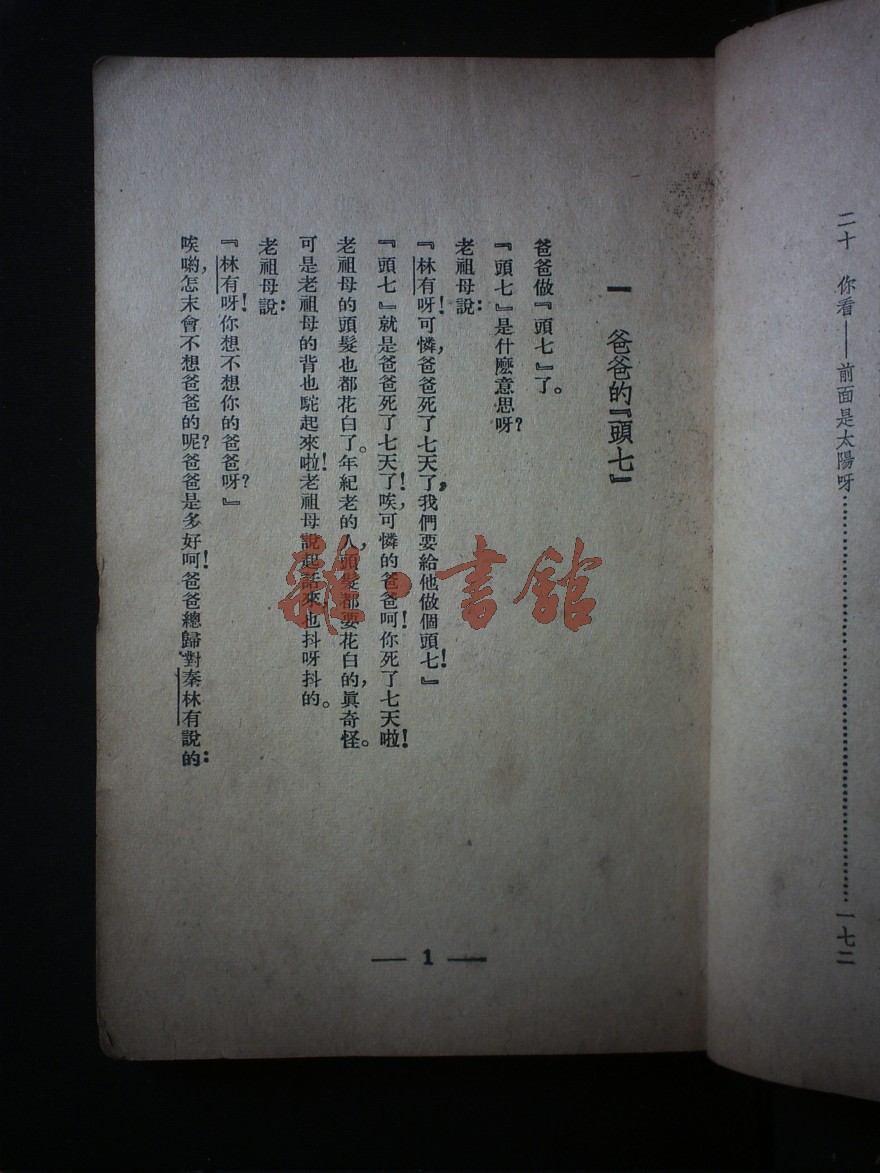 二十 你看——前面是太陽呀……一七二
一 爸爸的『頭七』
爸爸做『頭七』了。
『頭七』是什麽意思呀?
老祖母說:
『林有呀!可憐,爸爸死了七天了,我們要給他做個頭七!』
『頭七』就是爸爸死了七天了!唉,可憐的爸爸呵!你死了七天啦!
老祖母的頭髮也都花白了。年紀老的人,頭髮都要花白的,眞奇怪。
可是老祖母的背也駝起來啦!老祖母說起話來,也抖呀抖的。
老祖母說:
『林有呀!你想不想你的爸爸呀?』
唉喲,怎末會不想爸爸的呢?爸爸是多好呵!爸爸總歸對秦林有說的:
— 1 —
雜·書館